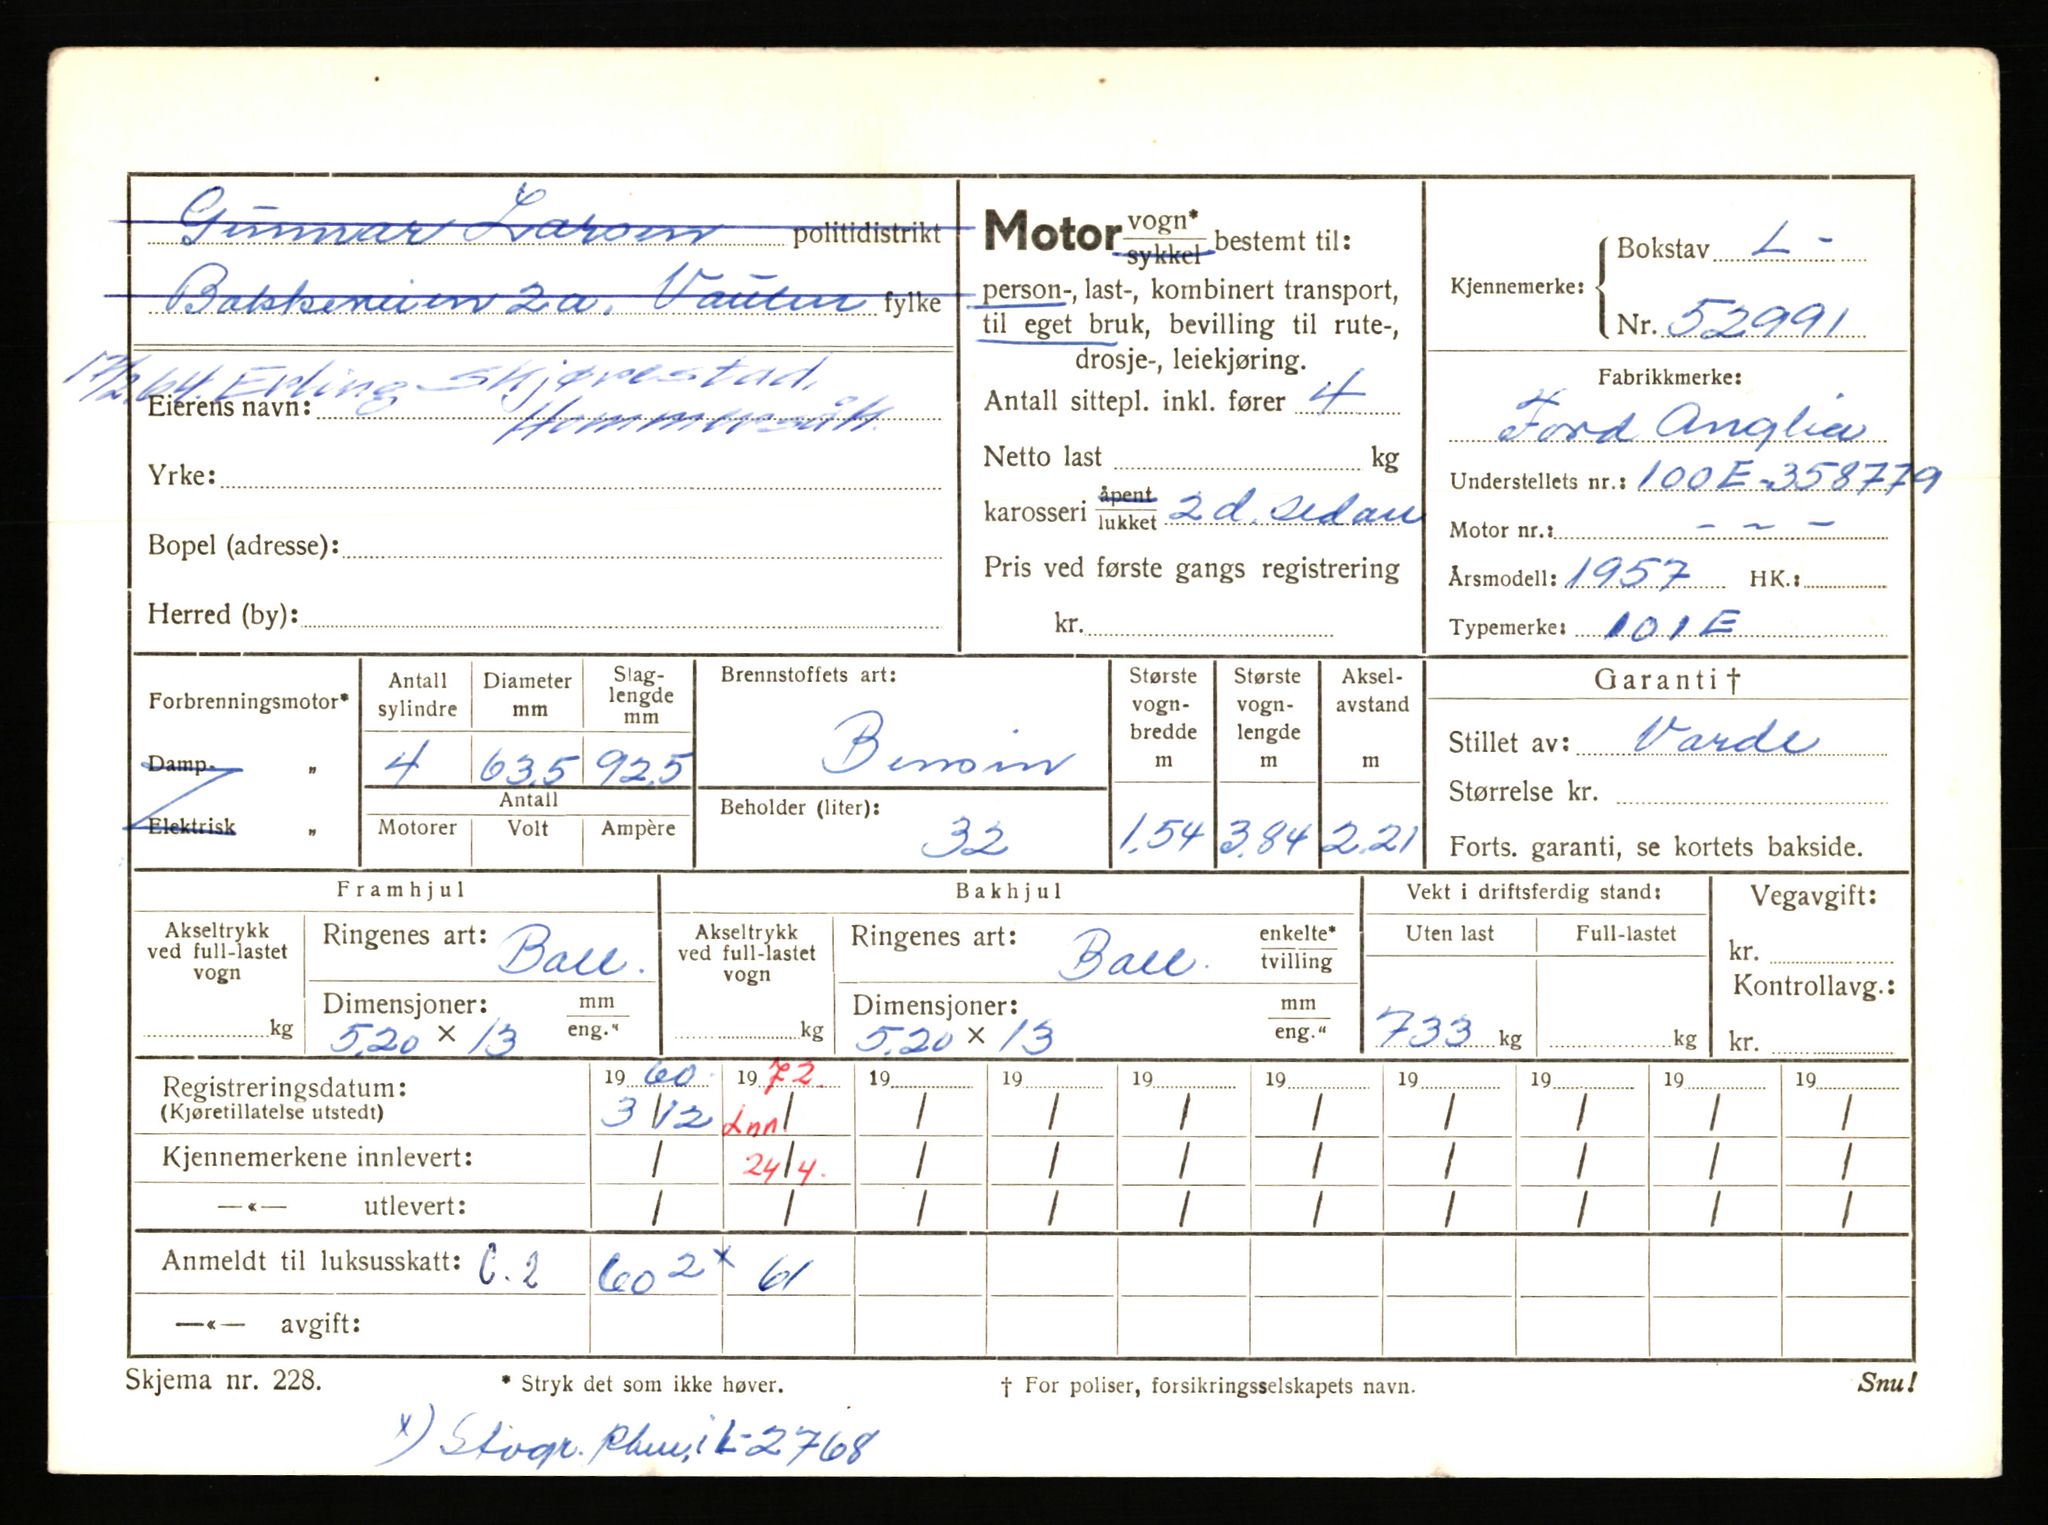 Gunnar Larsen politidistrikt
Bakkeveien 2a, fylke
17/2.64. Erling Skjørestad,
Eierens navn: Hommersåk.
Yrke:
Bopel (adresse):
Herred (by):
Motor vogn* / sykkel bestemt til:
person-, last-, kombinert transport,
til eget bruk, bevilling til rute-,
drosje-, leiekjøring.
Antall sittepl. inkl. fører 4
Netto last kg
karosseri åpent / lukket 2 d. sedan
Pris ved første gangs registrering
kr.
Kjennemerke: Bokstav L-
Nr. 52991
Fabrikkmerke:
Ford Anglia
Understellets nr.: 100E-358779
Motor nr.: - ~ -
Årsmodell: 1957 HK.:
Typemerke: 101E
Forbrenningsmotor*
Damp- „
Elektrisk „
Antall sylindre 4
Diameter mm 63,5
Slaglengde mm 92,5
Antall
Motorer Volt Ampère
Brennstoffets art:
Bensin
Beholder (liter):
32
Største vognbredde m 1,54
Største vognlengde m 3,84
Akselavstand m 2.21
Garanti †
Stillet av: Varde
Størrelse kr.
Forts. garanti, se kortets bakside.
Framhjul
Akseltrykk
ved full-lastet
vogn
kg
Ringenes art: Ball.
Dimensjoner: mm / eng."
5,20 × 13
Bakhjul
Akseltrykk
ved full-lastet
vogn
kg
Ringenes art: Ball. enkelte* / tvilling
Dimensjoner: mm / eng."
5,20 × 13
Vekt i driftsferdig stand:
Uten last Full-lastet
733 kg kg
Vegavgift:
kr.
Kontrollavg.:
kr.
Registreringsdatum: 19 60. 19 72. 19 19 19 19 19 19 19 19
(Kjøretillatelse utstedt) 3/12 Inn / / / / / / / / /
Kjennemerkene innlevert: / 24/4. / / / / / / / /
—«— utlevert: / / / / / / / / / /
Anmeldt til luksusskatt: C. 2 60 2 x 61
—«— avgift:
Skjema nr. 228. * Stryk det som ikke høver. † For poliser, forsikringsselskapets navn. Snu!
x) L-2768